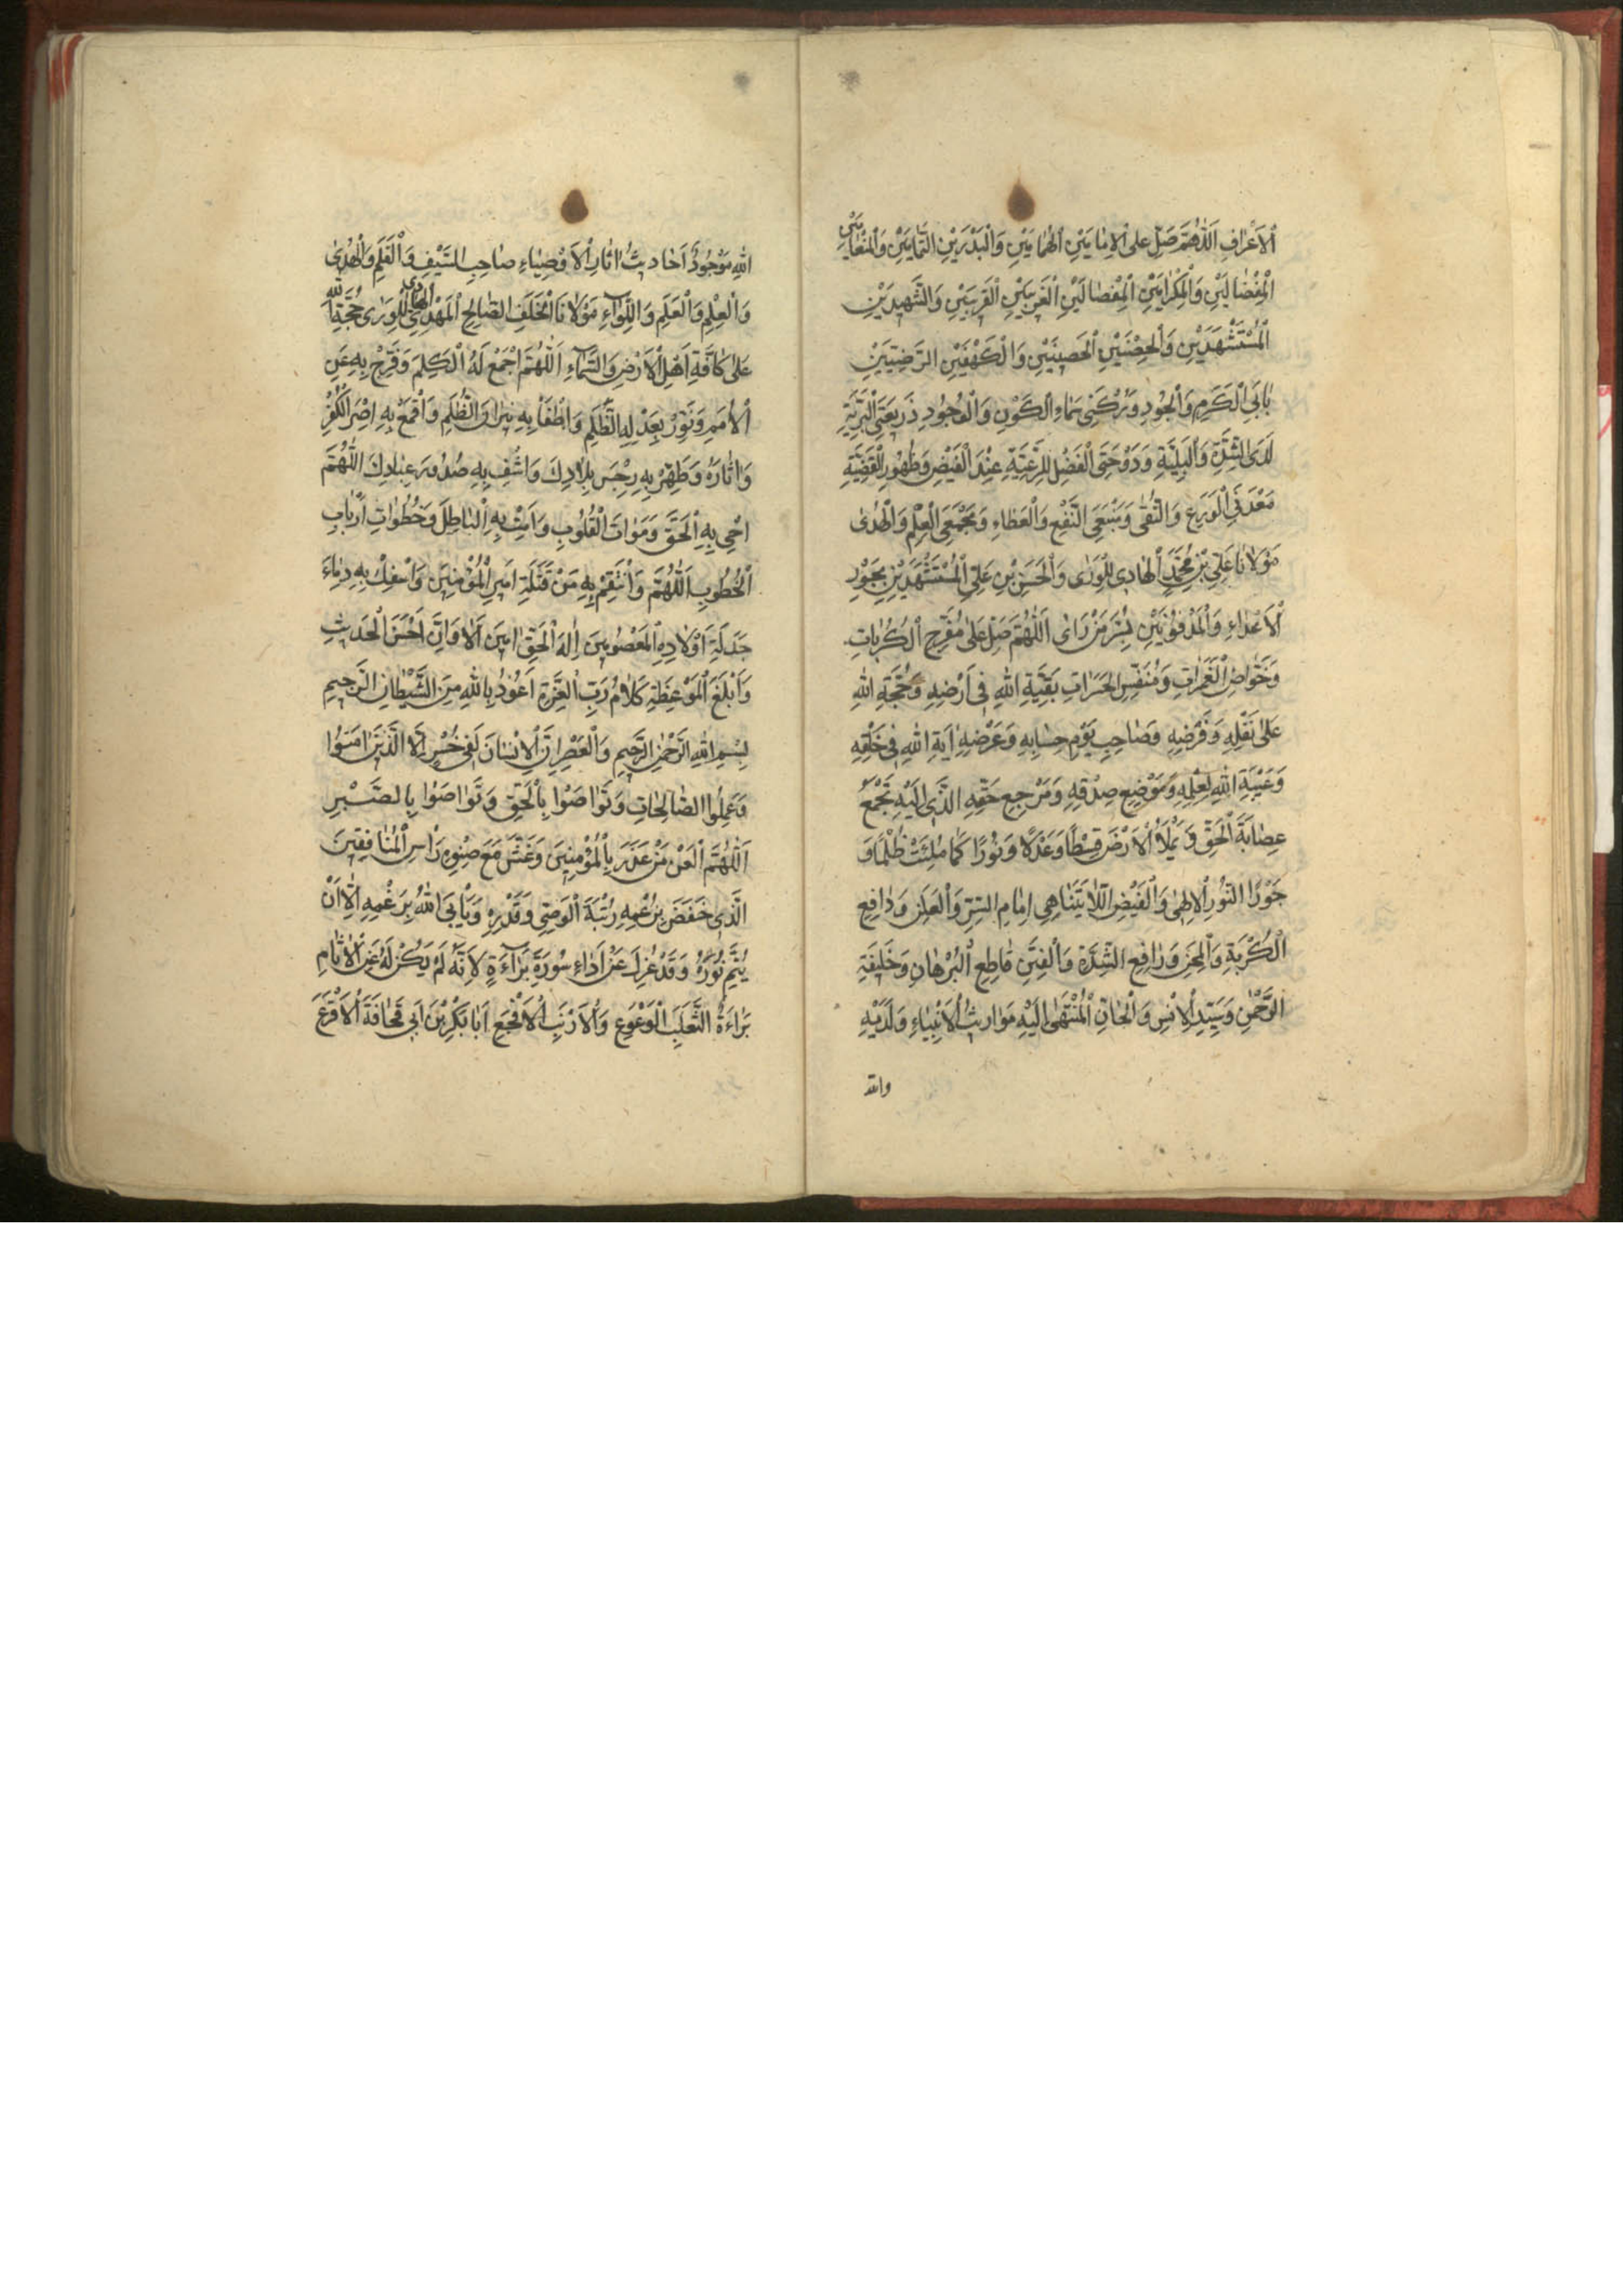 اَلْاَعْرٰافِ اَللّٰهُمَّ صَلِّ عَلَى الْاِمٰامَيْنِ الْهُمٰامَيْنِ وَالْبَدْرَيْنِ التَّمٰامَيْنِ وَالْمِنْعٰامَيْنِ
الْمِفْضٰالَيْنِ وَالْمِكْرٰامَيْنِ الْمِفْضٰالَيْنِ الْغَرِيبَيْنِ الْقَرِيبَيْنِ وَالشَّهِيدَيْنِ
الْمُسْتَشْهَدَيْنِ وَالْحِصْنَيْنِ الْحَصِينَيْنِ وَالْكَهْفَيْنِ الرَّضِيَّيْنِ
بٰابَىِ الْكَرَمِ وَالْجُودِ وَرُكْنَىْ سَمٰاءِ الْكَوْنِ وَالْوُجُودِ ذَرِيعَتَىِ الْبَرِيَّةِ
لَدَى الشِّدَّةِ وَالْبَلِيَّةِ وَدَوْحَتَىِ الْفَضْلِ لِلرَّعِيَّةِ عِنْدَ الْفَيْضِ وَظُهُورِ الْقَضِيَّةِ
مَعْدَنَىِ الْوَرَعِ وَالتُّقٰى وَمَنْبَعَىِ النَّفْعِ وَالْعَطٰاءِ وَمَجْمَعَىِ الْعِلْمِ وَالْهُدٰى
مَوْلٰانٰا عَلِىِّ بْنِ مُحَمَّدٍ الْهٰادِى لِلْوَرٰى وَالْحَسَنِ بْنِ عَلِىٍّ الْمُسْتَشْهَدَيْنِ بِجَوْرِ
الْاَعْدٰاءِ وَالْمَدْفُونَيْنِ بِسُرَّ مَنْ رَاٰى اَللّٰهُمَّ صَلِّ عَلٰى مُفَرِّجِ الْكُرُبٰاتِ
وَخَوّٰاضِ الْغَمَرٰاتِ وَمُنَفِّسِ الْحَسَرٰاتِ بَقِيَّةِ اللّٰهِ فِى اَرْضِهِ وَحُجَّةِ اللّٰهِ
عَلٰى نَفْلِهِ وَفَرْضِهِ وَصٰاحِبِ يَوْمِ حِسٰابِهِ وَعَرْضِهِ اٰيَةِ اللّٰهِ فِى خَلْقِهِ
وَعَيْبَةِ اللّٰهِ لِعِلْمِهِ وَمَوْضِعِ صِدْقِهِ وَمَرْجِعِ حَقِّهِ الَّذِى اِلَيْهِ تَجْمَعُ
عِصٰابَةَ الْحَقِّ وَيَمْلَأُ الْاَرْضَ قِسْطًا وَعَدْلًا وَنُورًا كَمٰا مُلِئَتْ ظُلْمًا وَ
جَوْرًا النُّورِ الْاِلٰهِى وَالْفَيْضِ اللّٰايَتَنٰاهِى اِمٰامِ السِّرِّ وَالْعَلَنِ وَدٰافِعِ
الْكُرْبَةِ وَالْمِحَنِ وَرٰافِعِ الشِّدَّةِ وَالْفِتَنِ قٰاطِعِ الْبُرْهٰانِ وَخَلِيفَةِ
الرَّحْمٰنِ وَسَيِّدِ الْاِنْسِ وَالْجٰانِّ الْمُنْتَهٰى اِلَيْهِ مَوٰارِيثُ الْاَنْبِيٰاءِ وَلَدَيْهِ
واللّٰه
اللّٰهِ مَوْجُودٌ اَحٰادِيثُ اٰثٰارِ الْاَوْصِيٰاءِ صٰاحِبِ السَّيْفِ وَالْقَلَمِ وَالْهُدٰى
وَالْعِلْمِ وَالْعَلَمِ وَاللِّوٰاءِ مَوْلٰانَا الْخَلَفِ الصّٰالِحِ الْمَهْدِىِّ الهادى لِلْوَرٰى حُجَّةِ اللّٰه
عَلٰى كٰافَّةِ اَهْلِ الْاَرْضِ وَالسَّمٰاءِ اَللّٰهُمَّ اجْمَعْ لَهُ الْكَلِمَ وَفَرِّجْ بِهِ عَنِ
الْاُمَمِ وَنَوِّرْ بِعَدْلِهِ الظُّلَمِ وَاطْفَأْ بِهِ نِيرٰانَ الظُّلَمِ وَاقْمَعْ بِهِ اِصْرَ الْكُفْرِ
وَاٰثٰارَهُ وَطَهِّرْ بِهِ رِجْسَ بِلٰادِكَ وَاشْفِ بِهِ صُدُورَ عِبٰادِكَ اَللّٰهُمَّ
احْىِ بِهِ الْحَقَّ وَمَوٰاتَ الْقُلُوبِ وَاَمِتْ بِهِ الْبٰاطِلَ وَخُطُوٰاتِ اَرْبٰابِ
الْخُطُوبِ اَللّٰهُمَّ وَانْتَقِمْ بِهِ مَنْ قَتَلَةِ اَمِيرِ الْمُؤْمِنِينَ وَاسْفِكْ بِهِ دِمٰاءَ
جَدَلَةِ اَوْلٰادِهِ الْمَعْصُومِينَ اِلٰهَ الْحَقِّ اٰمِينَ اَلٰا وَاِنَّ اَحْسَنَ الْحَدِيثِ
وَاَبْلَغَ الْمَوْعِظَةِ كَلٰامُ رَبِّ الْعِزَّةِ اَعُوذُ بِاللّٰهِ مِنَ الشَّيْطٰانِ الرَّجِيمِ
بِسْمِ اللّٰهِ الرَّحْمٰنِ الرَّحِيمِ وَالْعَصْرِ اِنَّ الْاِنْسٰانَ لَفِى خُسْرٍ اِلَّا الَّذِينَ اٰمَنُوا
وَعَمِلُوا الصّٰالِحٰاتِ وَتَوٰاصَوْا بِالْحَقِّ وَتَوٰاصَوْا بِالصَّبْرِ
اَللّٰهُمَّ الْعَنْ مَنْ غَدَرَ بِالْمُؤْمِنِينَ وَغَشَّ مَعَ صِنْوِهِ رَأْسِ الْمُنٰافِقِينَ
الَّذِى خَفَضَ بِزُعْمِهِ رُتْبَةَ الْوَصِىِّ وَقَدْرِهِ وَيَأْبَى اللّٰهُ بِرَغْمِهِ اِلّٰا اَنْ
يُتِمَّ نُورَهُ وَقَدْ عُزِلَ عَنْ اَدٰاءِ سُورَةِ بَرٰاءَةٍ لِاَنَّهُ لَمْ يَكُنْ لَهُ عَنِ الْاٰثٰامِ
بَرٰاءَةٌ الثَّعْلَبِ الْوَعْوَعِ وَالْاَرْنَبِ الْاَفْجَعِ اَبٰابَكْرِ بْنَ اَبِى قُحٰافَةَ الْاَقْرَعَ